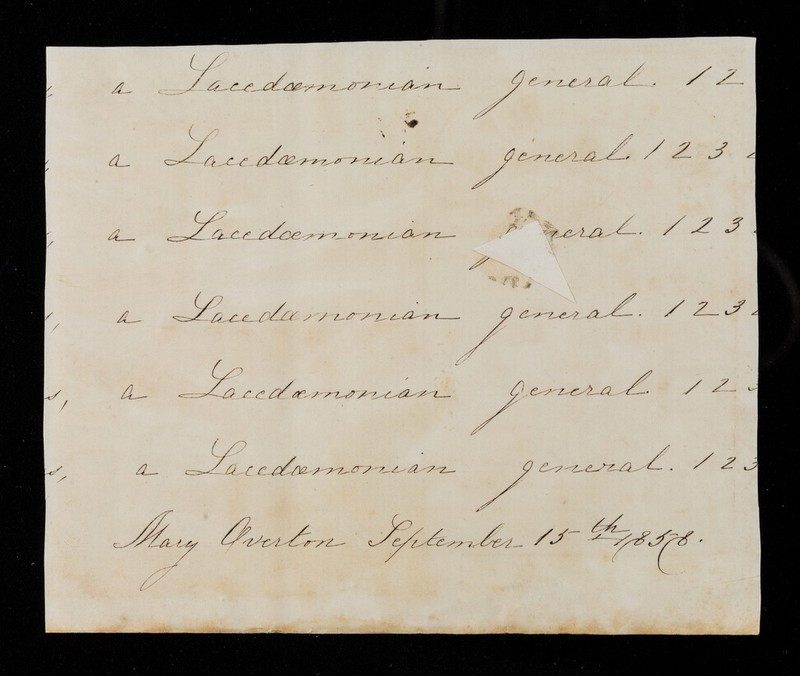 , a Lacedæmonian general. 12
, a Lacedæmonian general. 123
, a Lacedæmonian general. 123
, a Lacedæmonian general. 123
s, a Lacedæmonian general. 12
s, a Lacedæmonian general. 123
Mary Overton September 15th 1858.